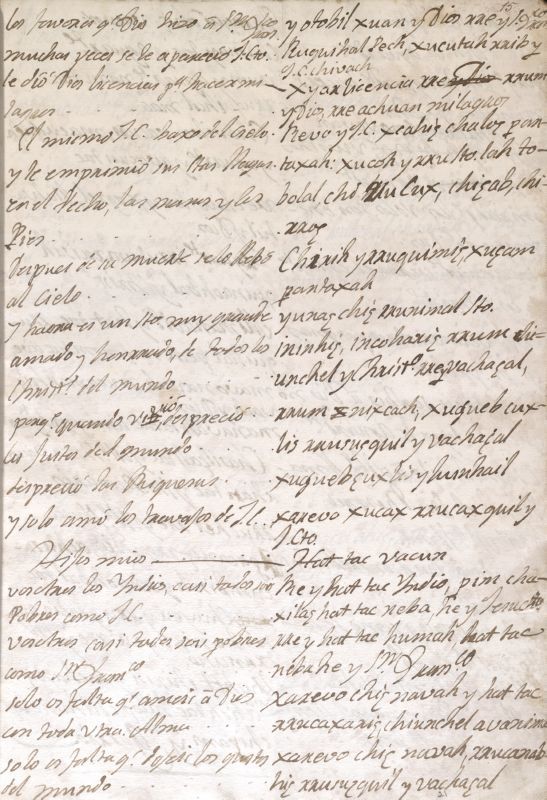 los favores q.e Dios hizo a S.n Fran.co
muchas veces se le apareció J.Cto.
le dió Dios licencia p.a hacer mi-
lagros.
El mismo J.C. baxo del Cielo
y le emprimió sus Stas Llagas
en el Pecho, las manos y los
Pies.
Despues de su muerte se lo llebó
al Cielo.
Y haora es un Sto. muy grande
amado y honrrado, de todos los
Christ.s del mundo
porq.e quando vivió, despreció
los Justos del mundo
despreció las Riquezas.
y solo amó los travajos de J.C.
Hijos mios
vosotros los Yndios, casi todos son
Pobres como J.C.
vosotros casi todos sois pobres
como S.n Fran.co
solo os falta q.e ameis â Dios
con toda vtra. Alma
solo os falta q.e dejeis los gustos
del mundo.
15
y otobil xuan y Dios rre y S.n Fran.co
Ruquihal Pech, xucutah rrib y
J.C. chivach
xyar licencia rre rrum
y Dios, rre achuan milagros
Hevo y J.C. xcahiç chaloç pan-
taxah: xucoh y rru Sto. lah to-
bolal, chi ru Cux, chiçab, chi-
rroç
Chirih y rruquimiç, xuçam
pantaxah
y unaç chiç rrunimal Sto.
ininhiç, incohariç rrum
unchel y Christ.o rreçvachaçal,
rrum nixcach, xuqueb cux-
lis rrusucquil y vachaçal
xuquebçuxlis y humhail
xarevo xucax rrucaxquil y
J.Cto.
Hat tac vacun
He y hat tac Yndio, pim cha-
xilas hat tac neba, he y Jesuchto
rre y hat tac humah hat tac
neba he y S.n Fran.co
xarevo chiç navah y hat tac
rrucaxariç chiunchel avanima
xarevo chiç navah, rrucanab-
hiç rrusucquil y vachaçal